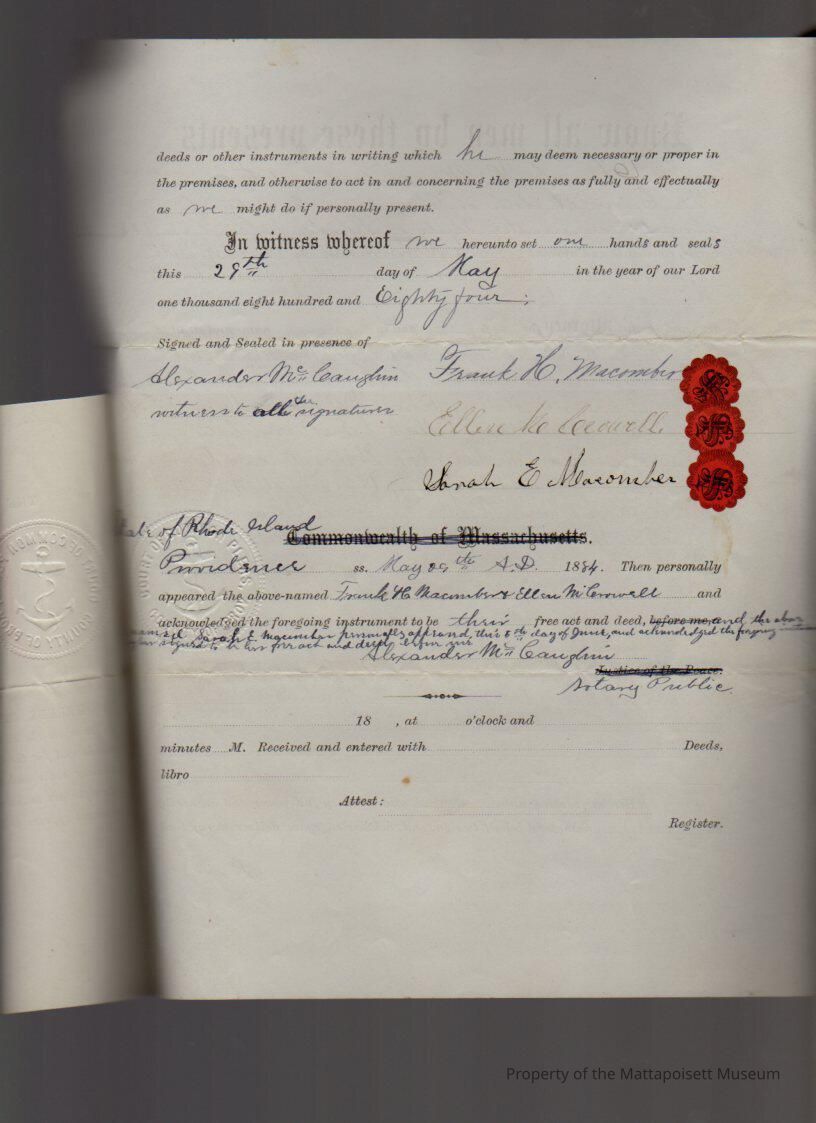 deeds or other instruments in writing which he may deem necessary or proper in
the premises, and otherwise to act in and concerning the premises as fully and effectually
as we might do if personally present.
In witness whereof we hereunto set our hands and seals
this 29th day of May in the year of our Lord
one thousand eight hundred and Eighty four;
Signed and Sealed in presence of
Alexander McCaughin Frank H. Macomber
witness to all the signatures
Ellen M Crowell
Sarah E Macomber
State of Rhode Island
Commonwealth of Massachusetts.
Providence ss. May 29th A.D. 1884. Then personally
appeared the above-named Frank H Macomber & Ellen M Crowell and
acknowledged the foregoing instrument to be their free act and deed, before me, and the above
named Sarah E Macomber personally appeared, this 5th day of June, and acknowledged the foregoing
signed to be her free act and deed, before me
Alexander McCaughin
Justice of the Peace.
Notary Public
18 , at o'clock and
minutes M. Received and entered with Deeds,
libro
Attest:
Register.
COUNTY OF
Property of the Mattapoisett Museum